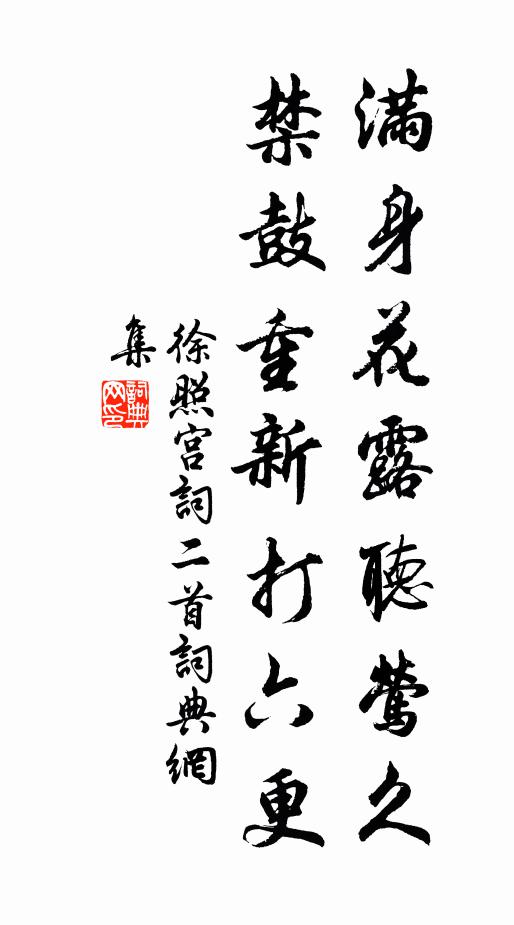 滿身花露聽鶯久
禁鼓重新打六更
徐照宮詞二首詞典網
集
詞典网印